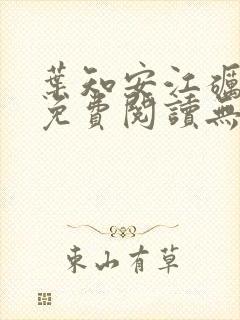 葉知安江礪
免費閱讀無
東山有草